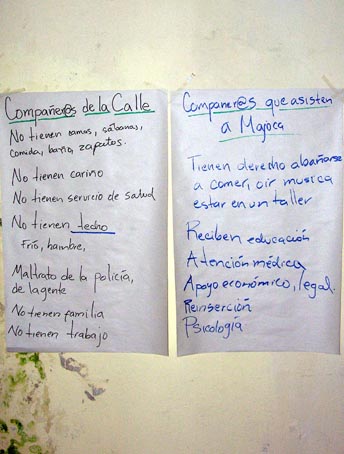 Compañer@s de la Calle
No tienen camas, sábanas,
comida, baño, zapatos.
No tienen carino
No tienen servicio de salud
No tienen techo
Frío, hambre,
Maltrato de la policía,
de la gente
No tienen familia
No tienen trabajo
Companer@s que asisten
a Majoca
Tienen derecho abañarse
a comer, oir musica
estar en un taller
Reciben educación
Atención médica
Apoyo económico, legal.
Reinserción
Psicología